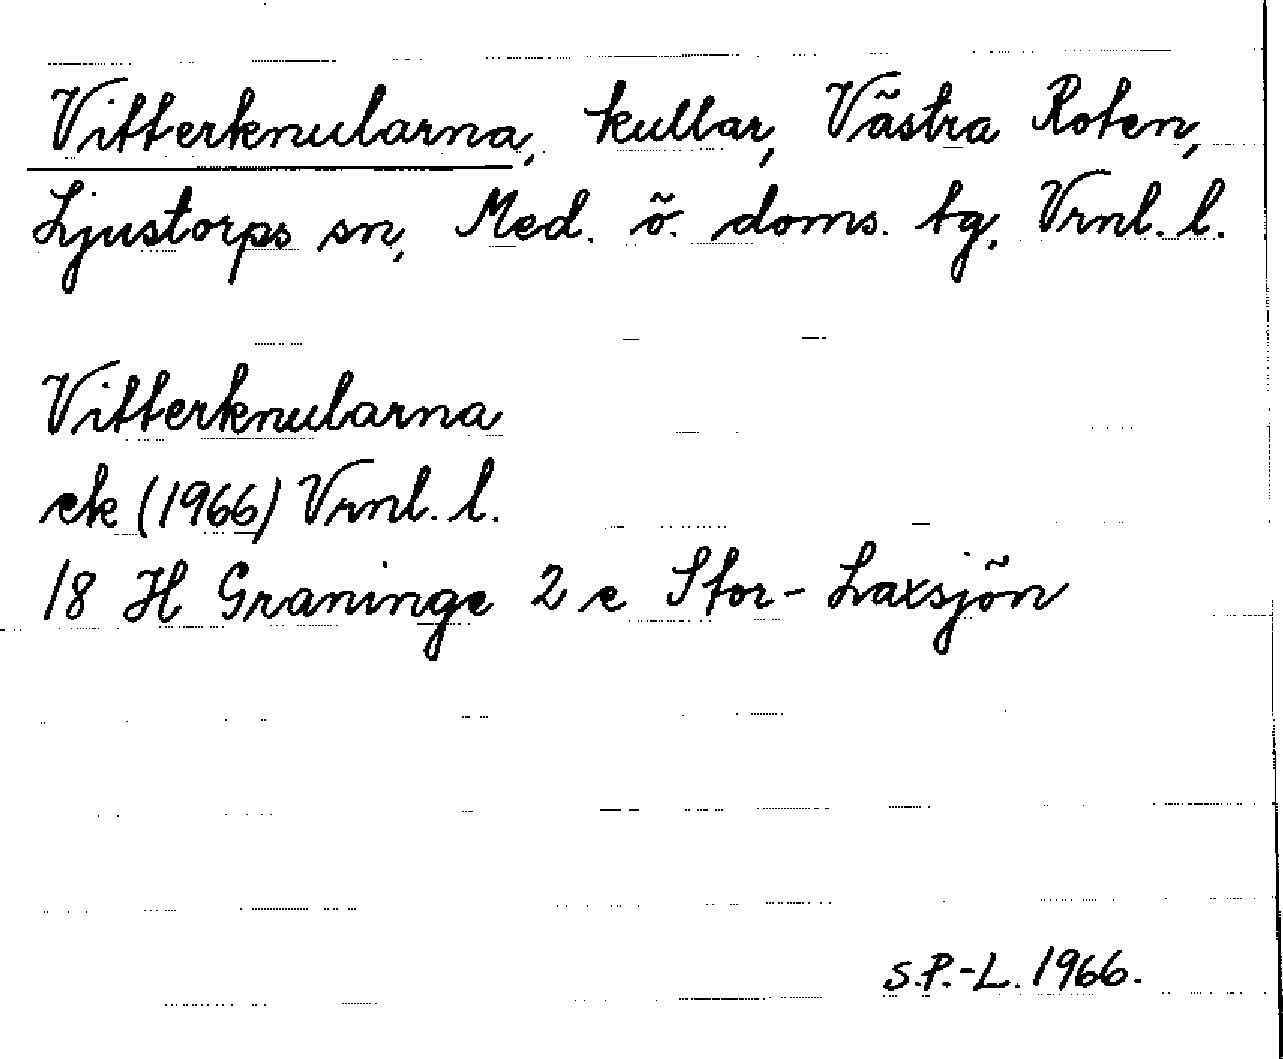 Vitterknularna, kullar, Västra Roten,
Ljustorps sn, Med. ö. doms. tg. Vrnl. l.
Vitterknularna
ek (1966) Vrnl. l.
18 H Graninge 2 e Stor-Laxsjön
S.P.-L. 1966.